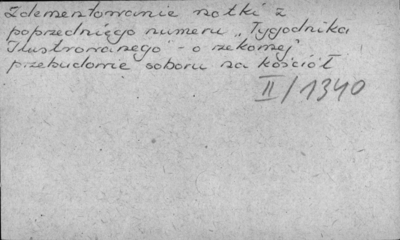 Zdementowanie notki z
poprzedniego numeru „Tygodnika
Ilustrowanego" - o rzekomej
przebudowie soboru na kościół
II/1340